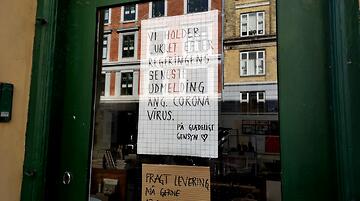 VI HOLDER
LUKKET EFTER
REGERINGENS
SENESTE
UDMELDING
ANG. CORONA
VIRUS.
PÅ GLÆDELIGT
GENSYN ♡
FRAGT LEVERING
MÅ GERNE